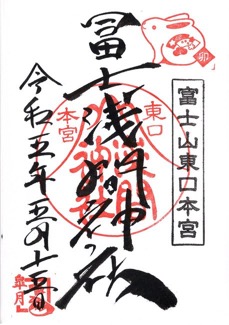 卯
富士山東口本宮
東口
本宮
冨士浅間神社
令和五年五月十三日
皐月